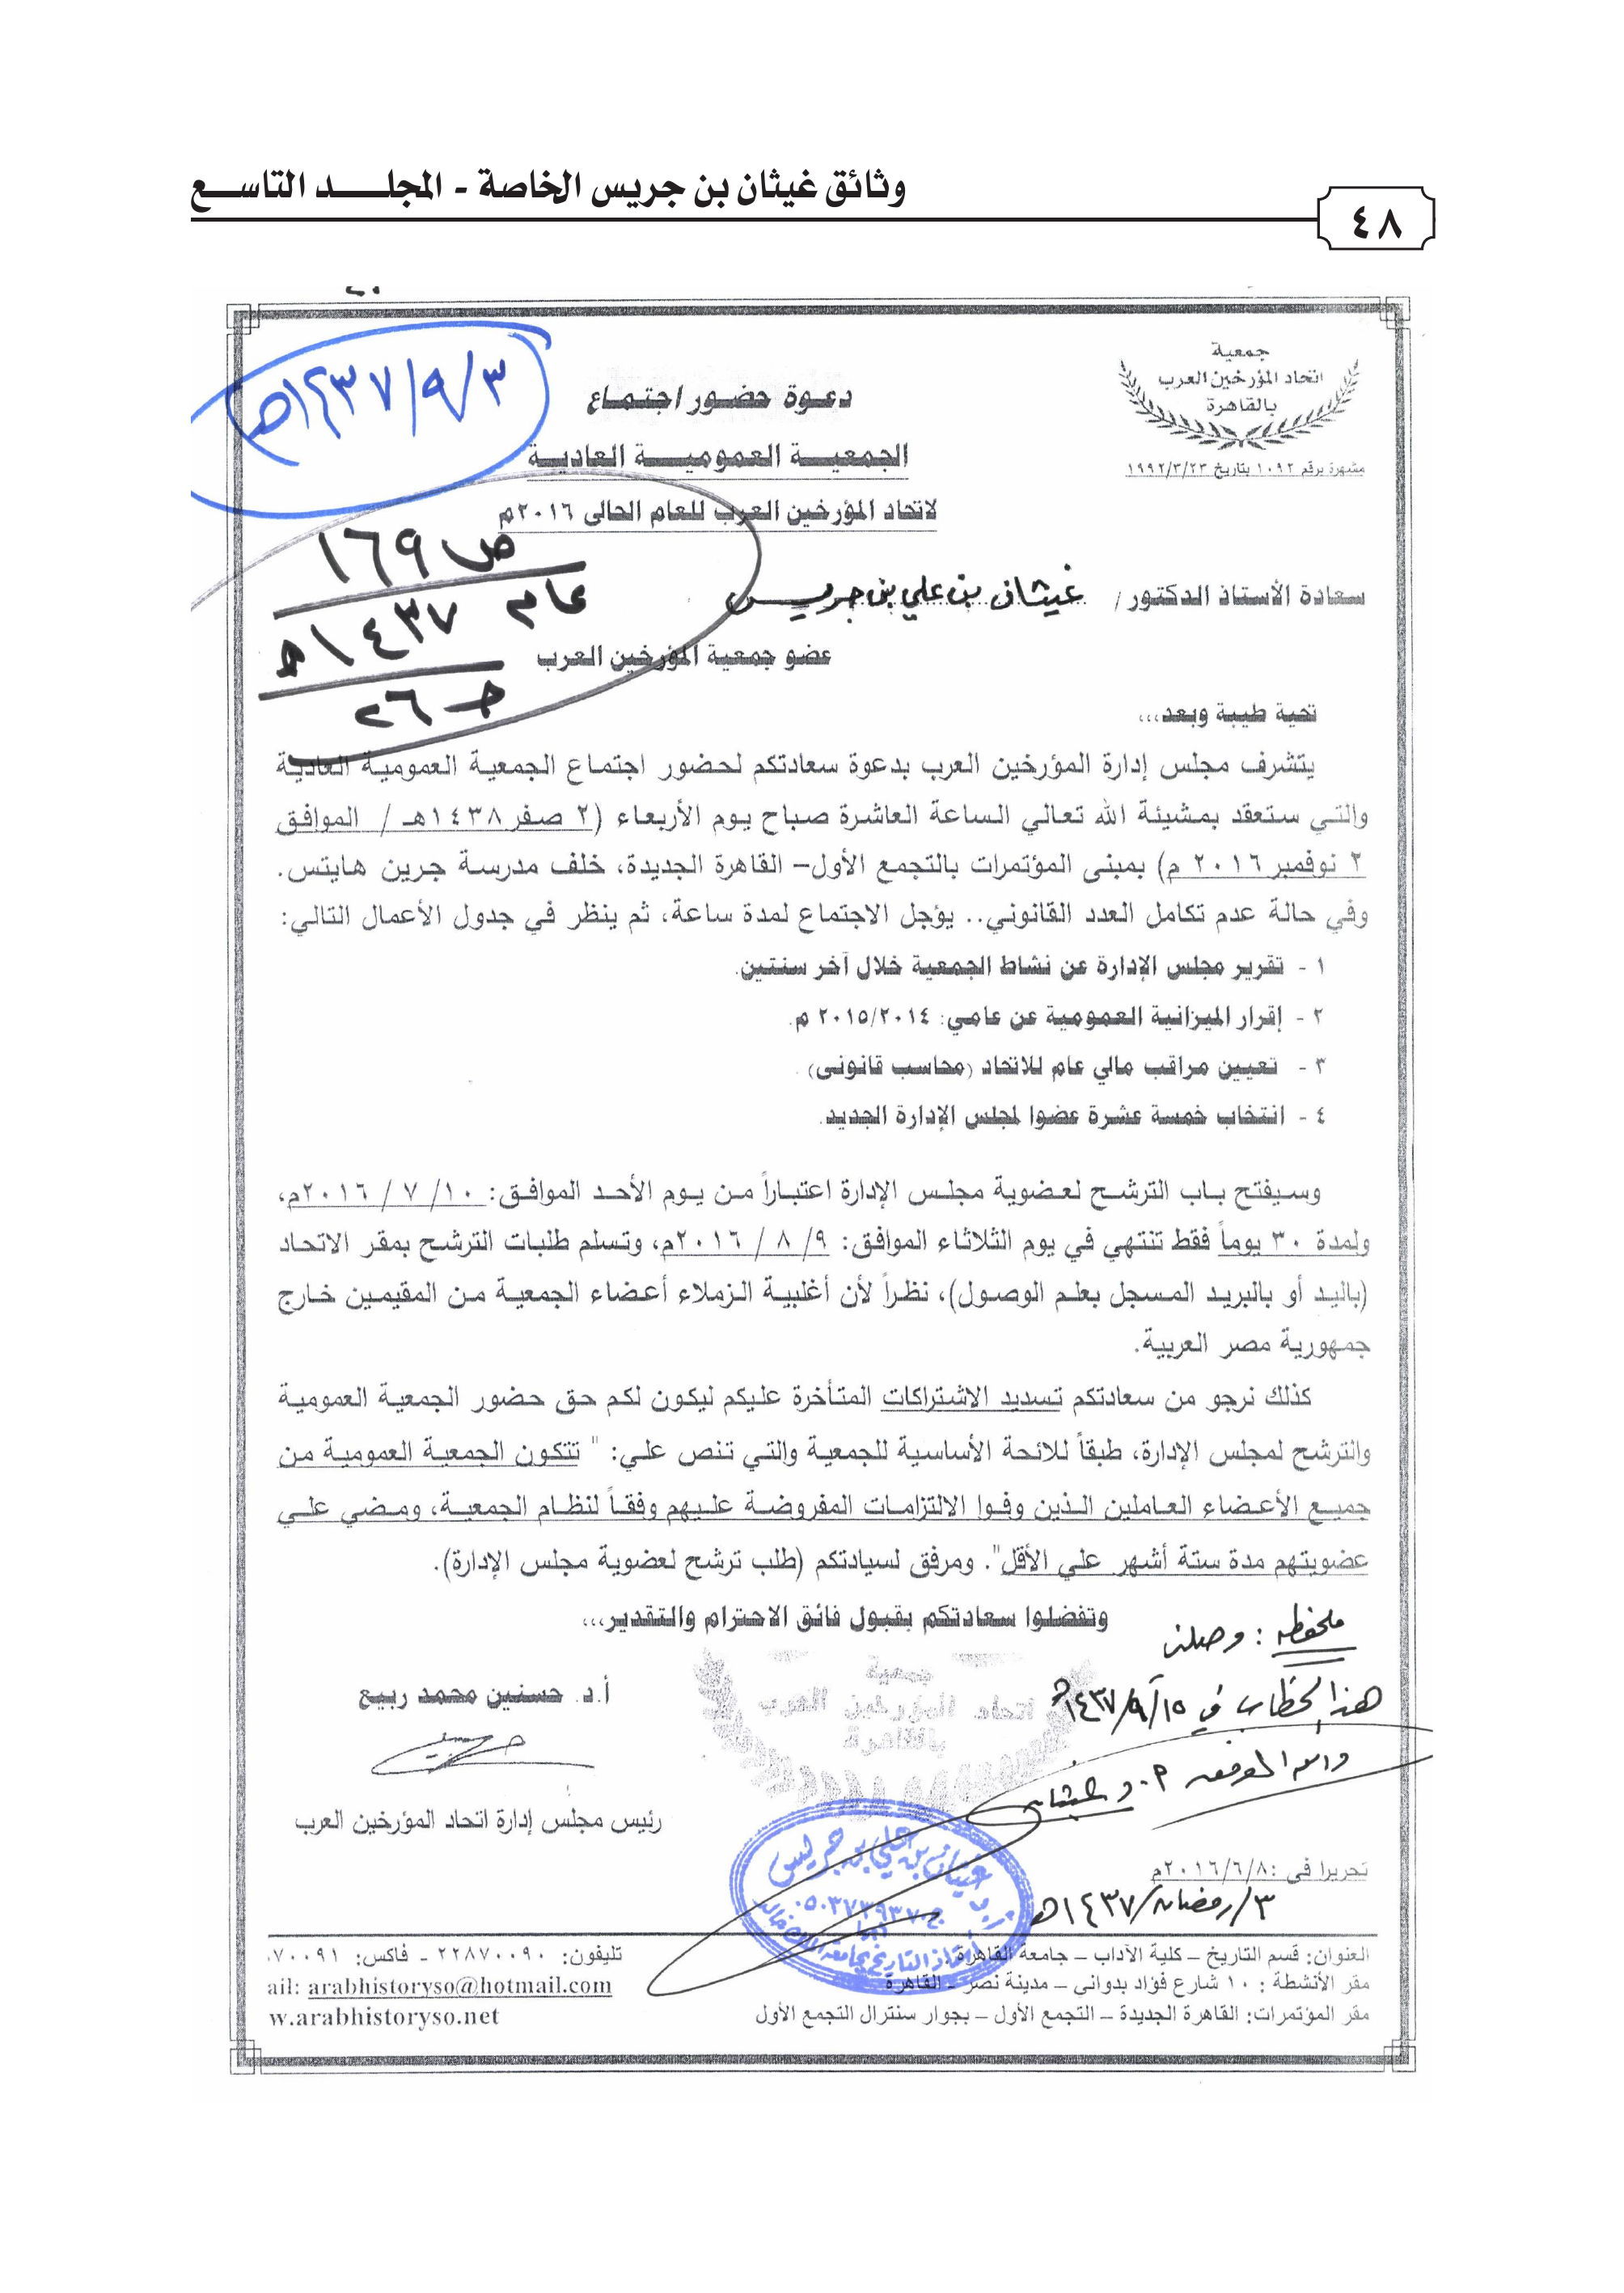 وثائق غيثان بن جريس الخاصة - المجلد التاسع
٤٨
جمعية
اتحاد المؤرخين العرب
بالقاهرة
مشهرة برقم ١٠٩٢ بتاريخ ١٩٩٢/٣/٢٣
٣/٩/١٤٣٧هـ
دعوة حضور اجتماع
الجمعية العمومية العادية
لاتحاد المؤرخين العرب للعام الحالى ٢٠١٦م
ص ١٦٩
عام ١٤٣٧هـ
جـ ٢٦
سعادة الأستاذ الدكتور / غيثان بن علي بن جريس
عضو جمعية المؤرخين العرب
تحية طيبة وبعد...
يتشرف مجلس إدارة المؤرخين العرب بدعوة سعادتكم لحضور اجتماع الجمعية العمومية العادية
والتي ستعقد بمشيئة الله تعالي الساعة العاشرة صباح يوم الأربعاء (٢ صفر ١٤٣٨هـ / الموافق
٢ نوفمبر ٢٠١٦ م) بمبنى المؤتمرات بالتجمع الأول– القاهرة الجديدة، خلف مدرسة جرين هايتس.
وفي حالة عدم تكامل العدد القانوني.. يؤجل الاجتماع لمدة ساعة، ثم ينظر في جدول الأعمال التالي:
١ - تقرير مجلس الإدارة عن نشاط الجمعية خلال آخر سنتين.
٢ - إقرار الميزانية العمومية عن عامي: ٢٠١٥/٢٠١٤ م.
٣ - تعيين مراقب مالي عام للاتحاد (محاسب قانونى) .
٤ - انتخاب خمسة عشرة عضوا لمجلس الإدارة الجديد.
وسيفتح باب الترشح لعضوية مجلس الإدارة اعتباراً من يوم الأحد الموافق: ١٠/ ٧ / ٢٠١٦م،
ولمدة ٣٠ يوماً فقط تنتهي في يوم الثلاثاء الموافق: ٩/ ٨ / ٢٠١٦م، وتسلم طلبات الترشح بمقر الاتحاد
(باليد أو بالبريد المسجل بعلم الوصول)، نظراً لأن أغلبية الزملاء أعضاء الجمعية من المقيمين خارج
جمهورية مصر العربية.
كذلك نرجو من سعادتكم تسديد الاشتراكات المتأخرة عليكم ليكون لكم حق حضور الجمعية العمومية
والترشح لمجلس الإدارة، طبقاً للائحة الأساسية للجمعية والتي تنص علي: " تتكون الجمعية العمومية من
جميع الأعضاء العاملين الذين وفوا الالتزامات المفروضة عليهم وفقاً لنظام الجمعية، ومضي علي
عضويتهم مدة ستة أشهر علي الأقل". ومرفق لسيادتكم (طلب ترشح لعضوية مجلس الإدارة).
وتفضلوا سعادتكم بقبول فائق الاحترام والتقدير...
ملحوظه : وصلني
هذا الخطاب في ١٥/٩/١٤٣٧هـ
والله الموفق
أ.د. حسنين محمد ربيع
رئيس مجلس إدارة اتحاد المؤرخين العرب
جمعية
اتحاد المؤرخين العرب
بالقاهرة
غيثان بن علي بن جريس
تحريرا فى :٢٠١٦/٦/٨م
٣/رمضان/١٤٣٧هـ
العنوان: قسم التاريخ – كلية الآداب – جامعة القاهرة
تليفون: ٢٢٨٧٠٠٩٠ - فاكس: ٧٠٠٩١
مقر الأنشطة : ١٠ شارع فؤاد بدوانى – مدينة نصر - القاهرة
ail: arabhistoryso@hotmail.com
مقر المؤتمرات: القاهرة الجديدة – التجمع الأول – بجوار سنترال التجمع الأول
w.arabhistoryso.net